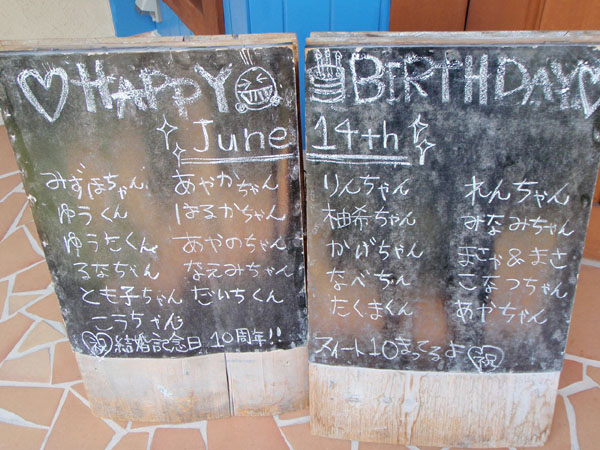 HAPPY BIRTHDAY
June 14th
みずほちゃん あやかちゃん
ゆうくん はるかちゃん
ゆうたくん あやのちゃん
るなちゃん なえみちゃん
とも子ちゃん だいちくん
こうちゃん
祝 結婚記念日 10周年!!
りんちゃん れんちゃん
柚希ちゃん みなみちゃん
かげちゃん まさや&まさ
なべちゃん こなつちゃん
たくまくん あやちゃん
スイート10まってるよ 祝